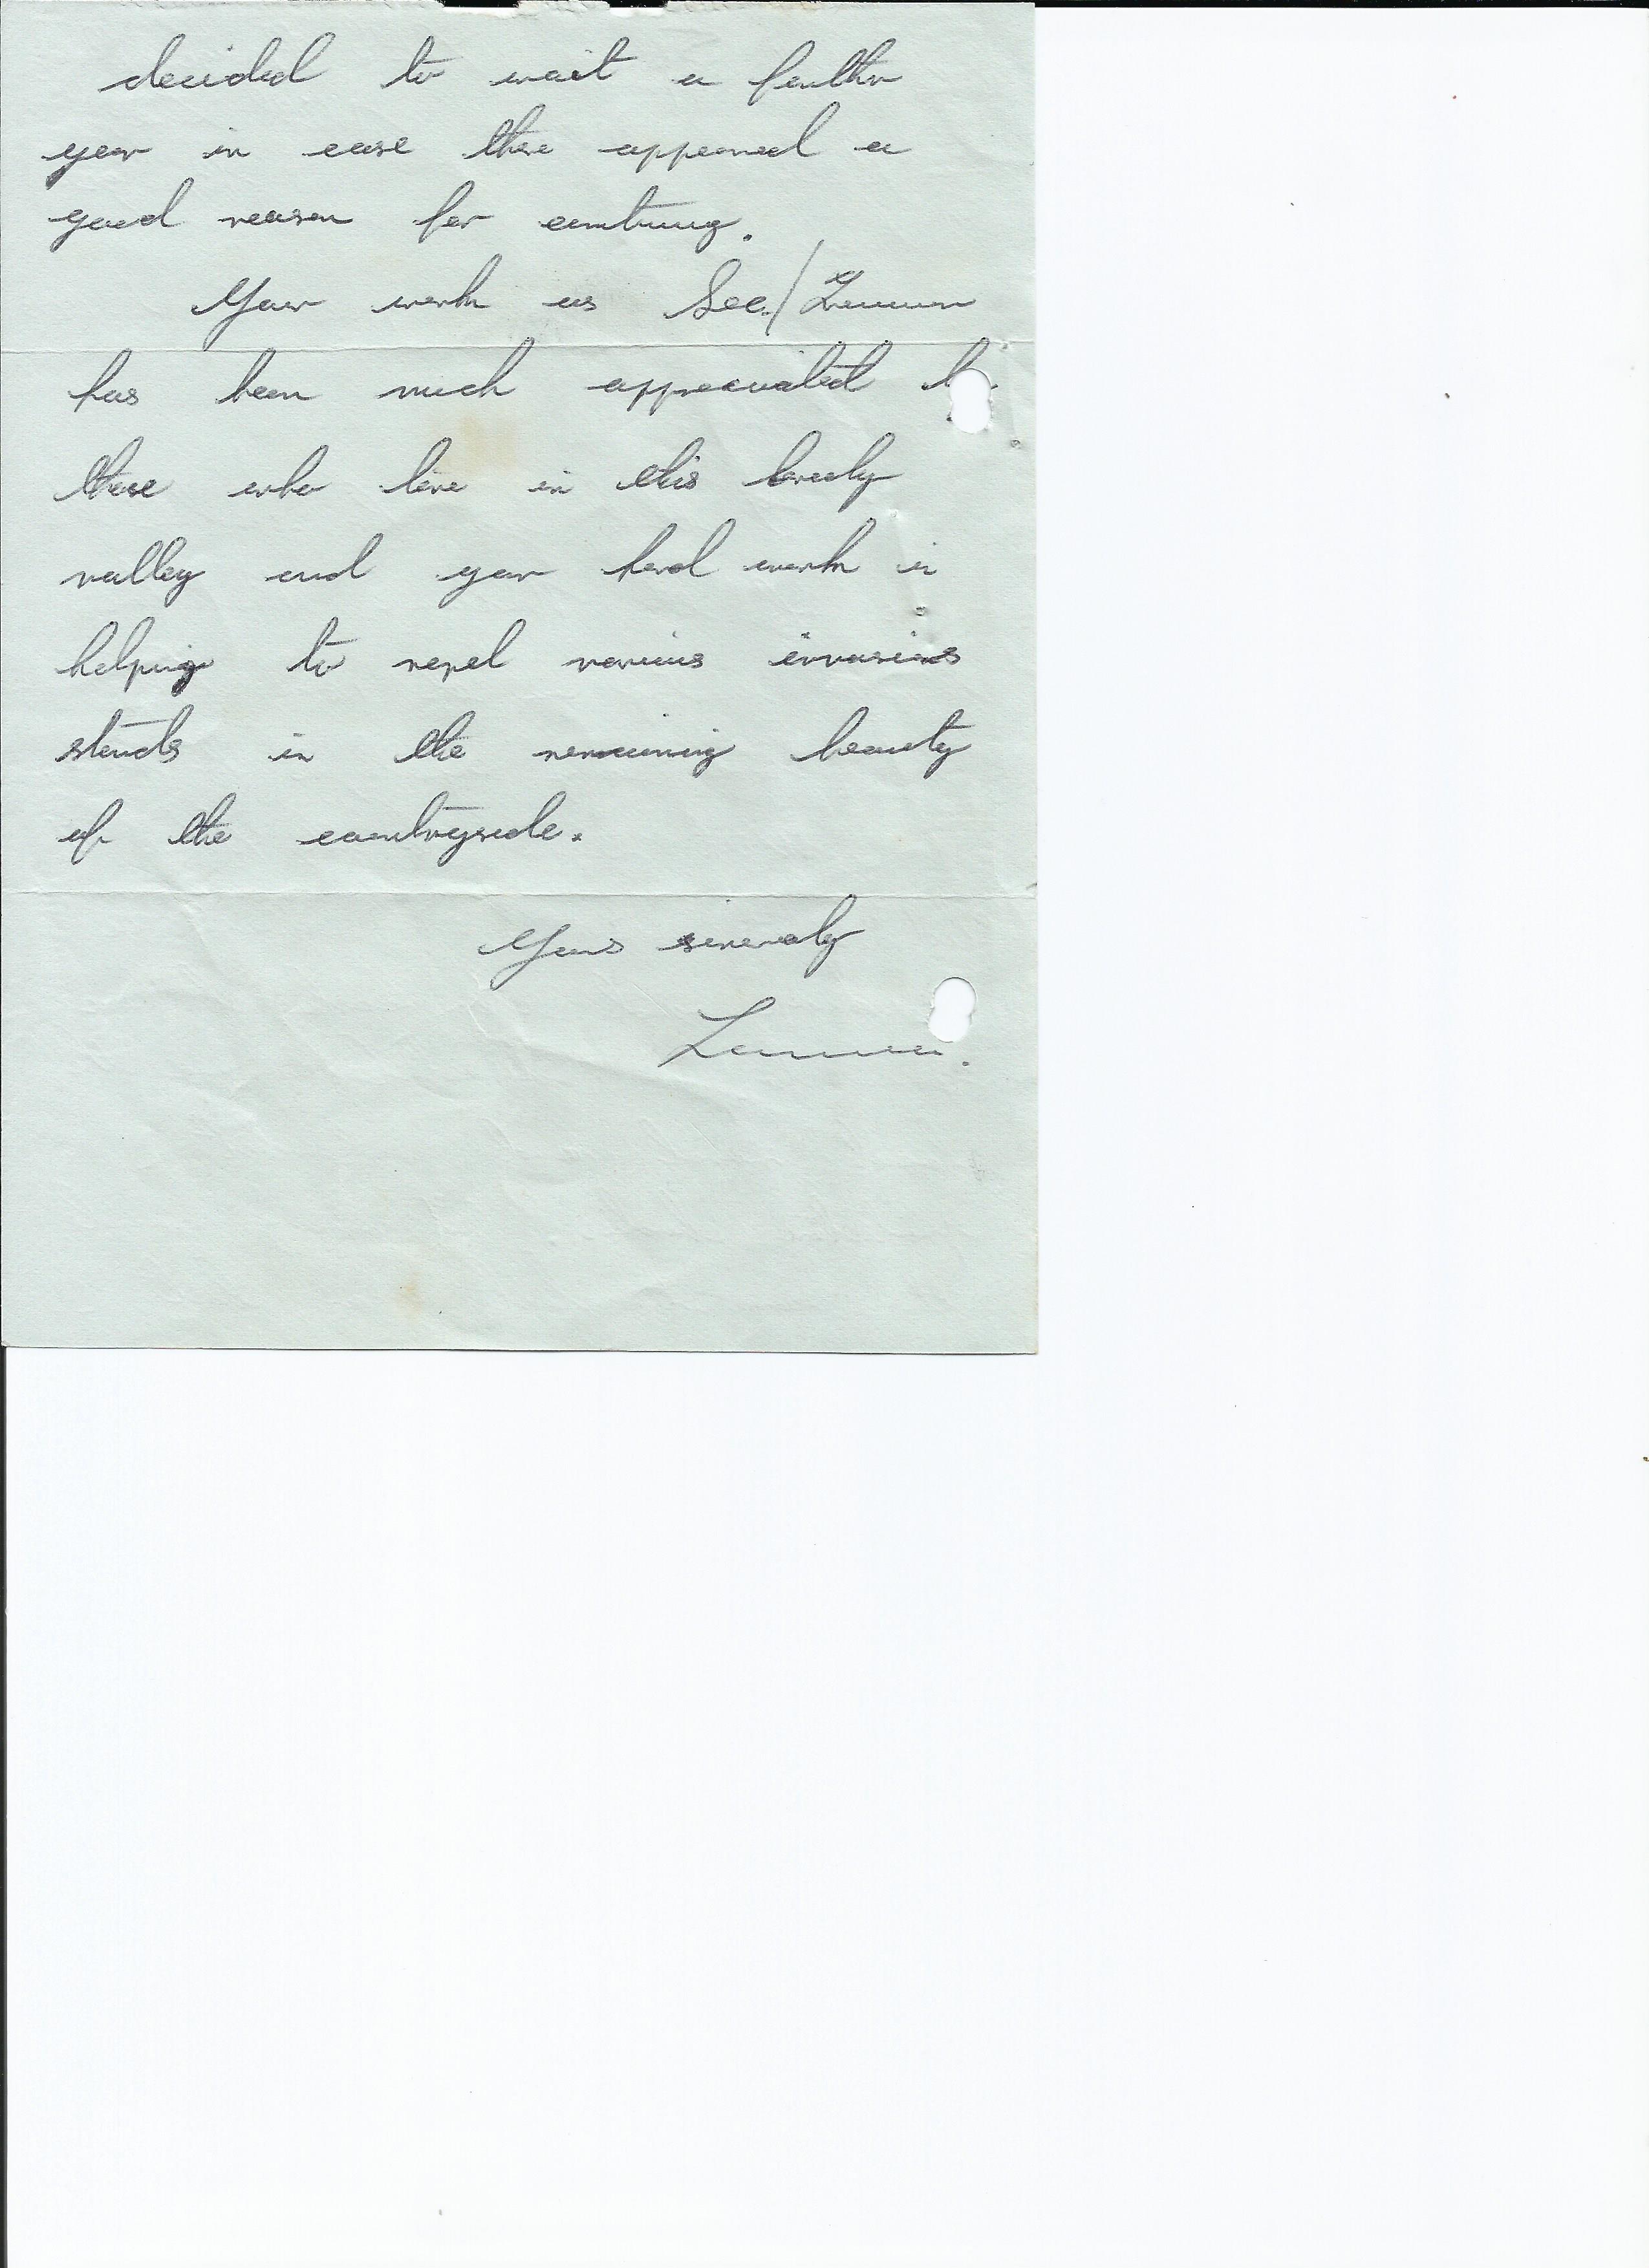 decided to wait a further
year in case there appeared a
good reason for continuing.
Your work as Sec./
has been much appreciated
those who live in this lovely
valley and your hard work in
helping to repel various invasions
stands in the remaining beauty
of the countryside.
Yours sincerely